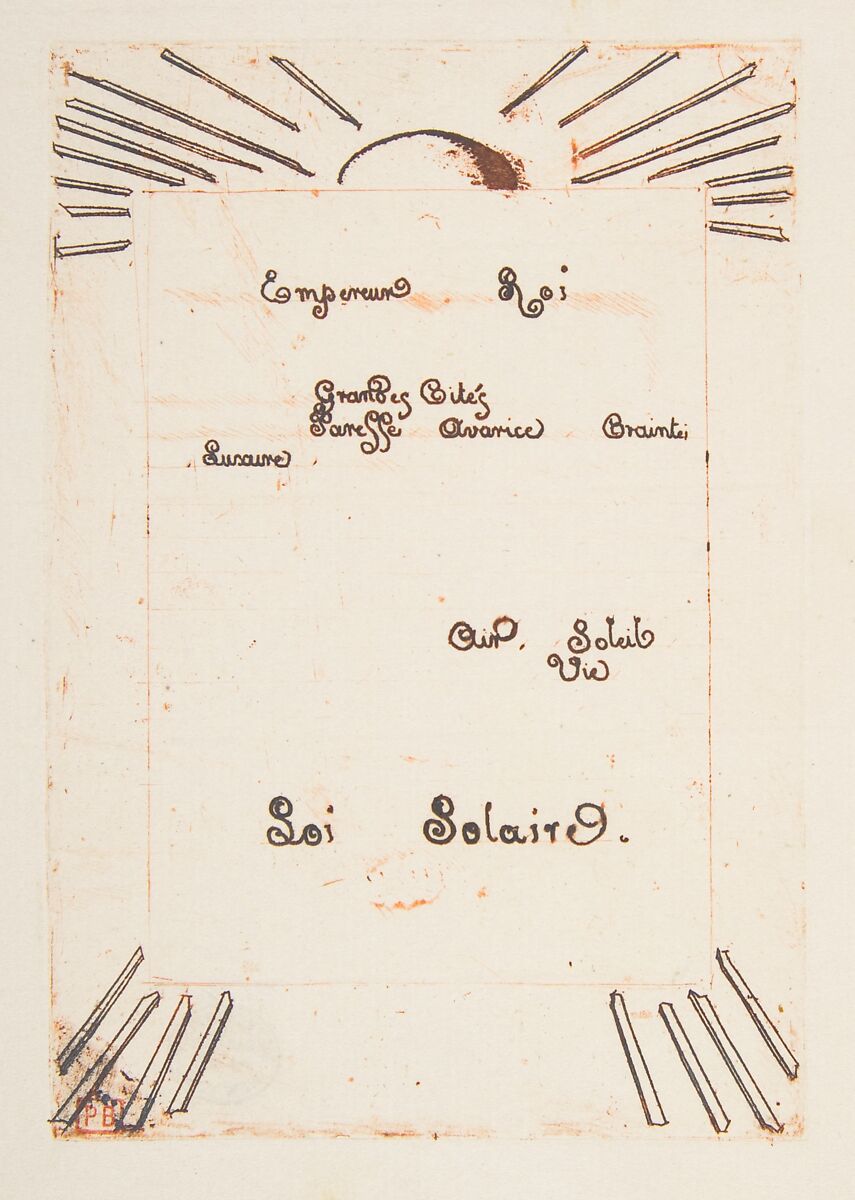 Empereur Roi
Grandes Cités
Paresse Avarice Craintes
Luxure
Air. Soleil
Vie
Loi Solaire.
PB